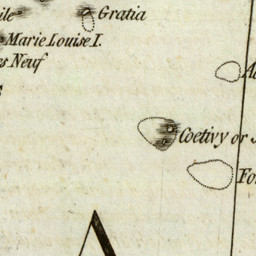 ile
Gratia
Marie Louise I.
es Neuf
Coetivy or
Fo
A